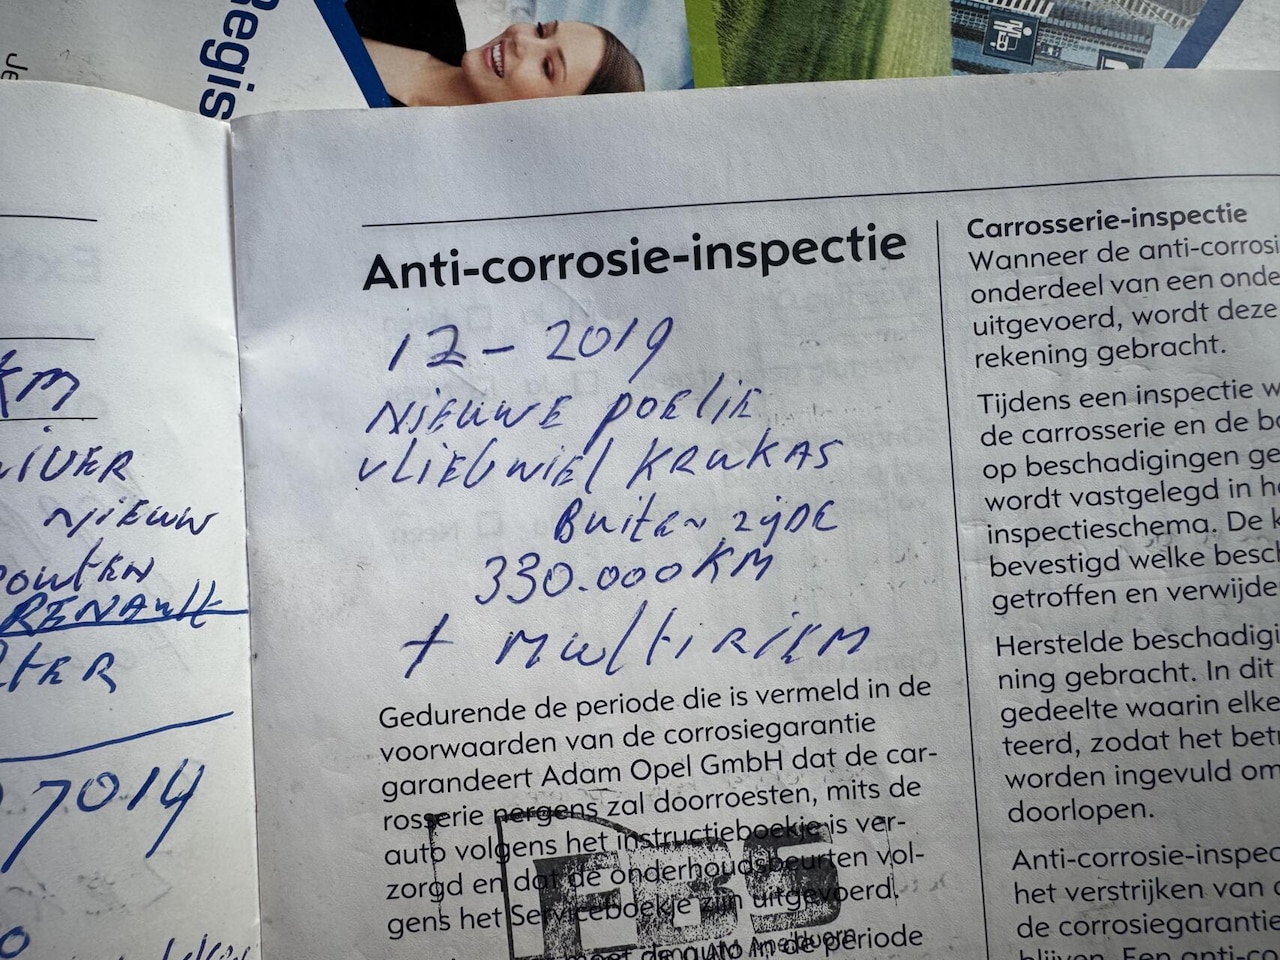 Regis
Je
KM
NIEUW
RENAULT
7014
Anti-corrosie-inspectie
12-2019
NIEUWE POELIE
VLIEGWIEL KRUKAS
BUITEN ZIJDE
330.000 KM
+ MULTIRIEM
Gedurende de periode die is vermeld in de
voorwaarden van de corrosiegarantie
garandeert Adam Opel GmbH dat de car-
rosserie nergens zal doorroesten, mits de
auto volgens het instructieboekje is ver-
zorgd en dat de onderhoudsbeurten vol-
gens het Serviceboekje zijn uitgevoerd.
moet de auto in de periode
EBS
Carrosserie-inspectie
Wanneer de anti-corrosi
onderdeel van een onde
uitgevoerd, wordt deze
rekening gebracht.
Tijdens een inspectie w
de carrosserie en de bo
op beschadigingen ge
wordt vastgelegd in he
inspectieschema. De k
bevestigd welke besch
getroffen en verwijde
Herstelde beschadigi
ning gebracht. In dit
gedeelte waarin elke
teerd, zodat het betr
worden ingevuld om
doorlopen.
Anti-corrosie-inspec
het verstrijken van d
de corrosiegarantie
blijven. Een anti-co